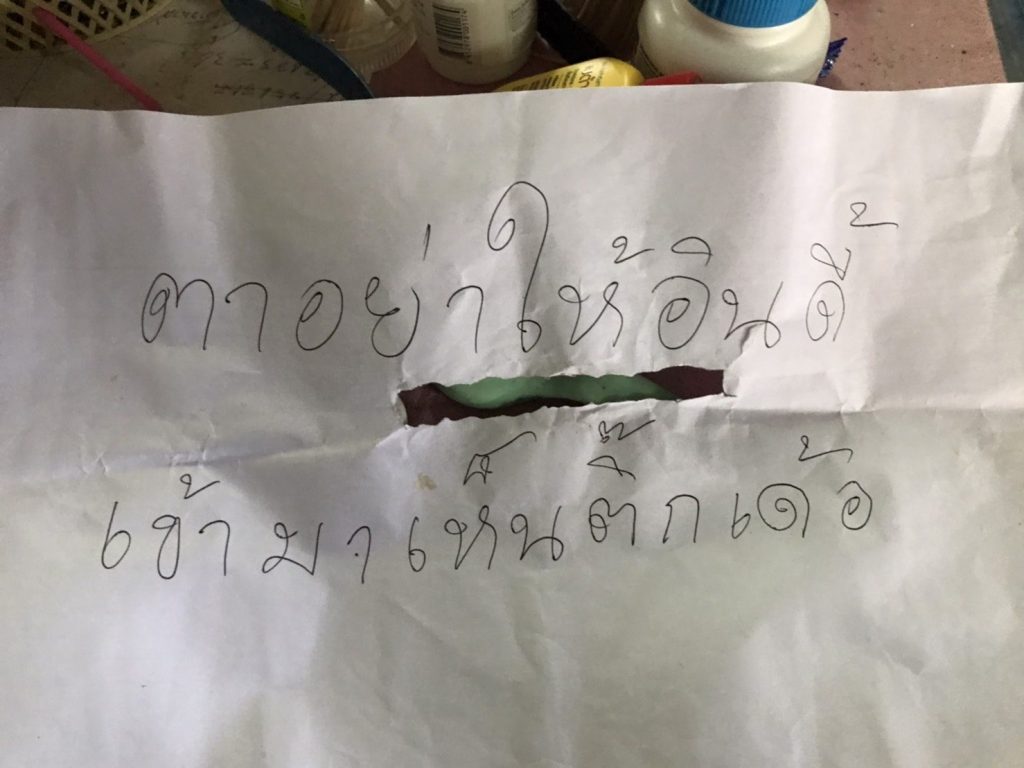 ตาอย่าให้อินดี้
เข้ามาเห็นติ๊กเด้อ